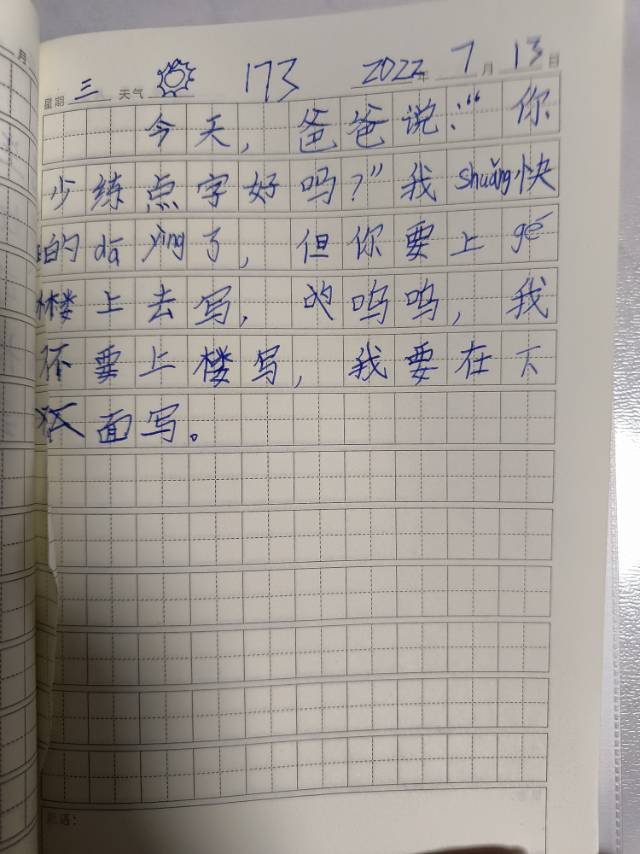 月
星期 三 天气 173 2022年 7月 13日
今天，爸爸说：“你
少练点字好吗？”我shuǎng快
的dā yìng了，但你要上gé
楼上去写，的呜呜，我
不要上楼写，我要在下
面写。